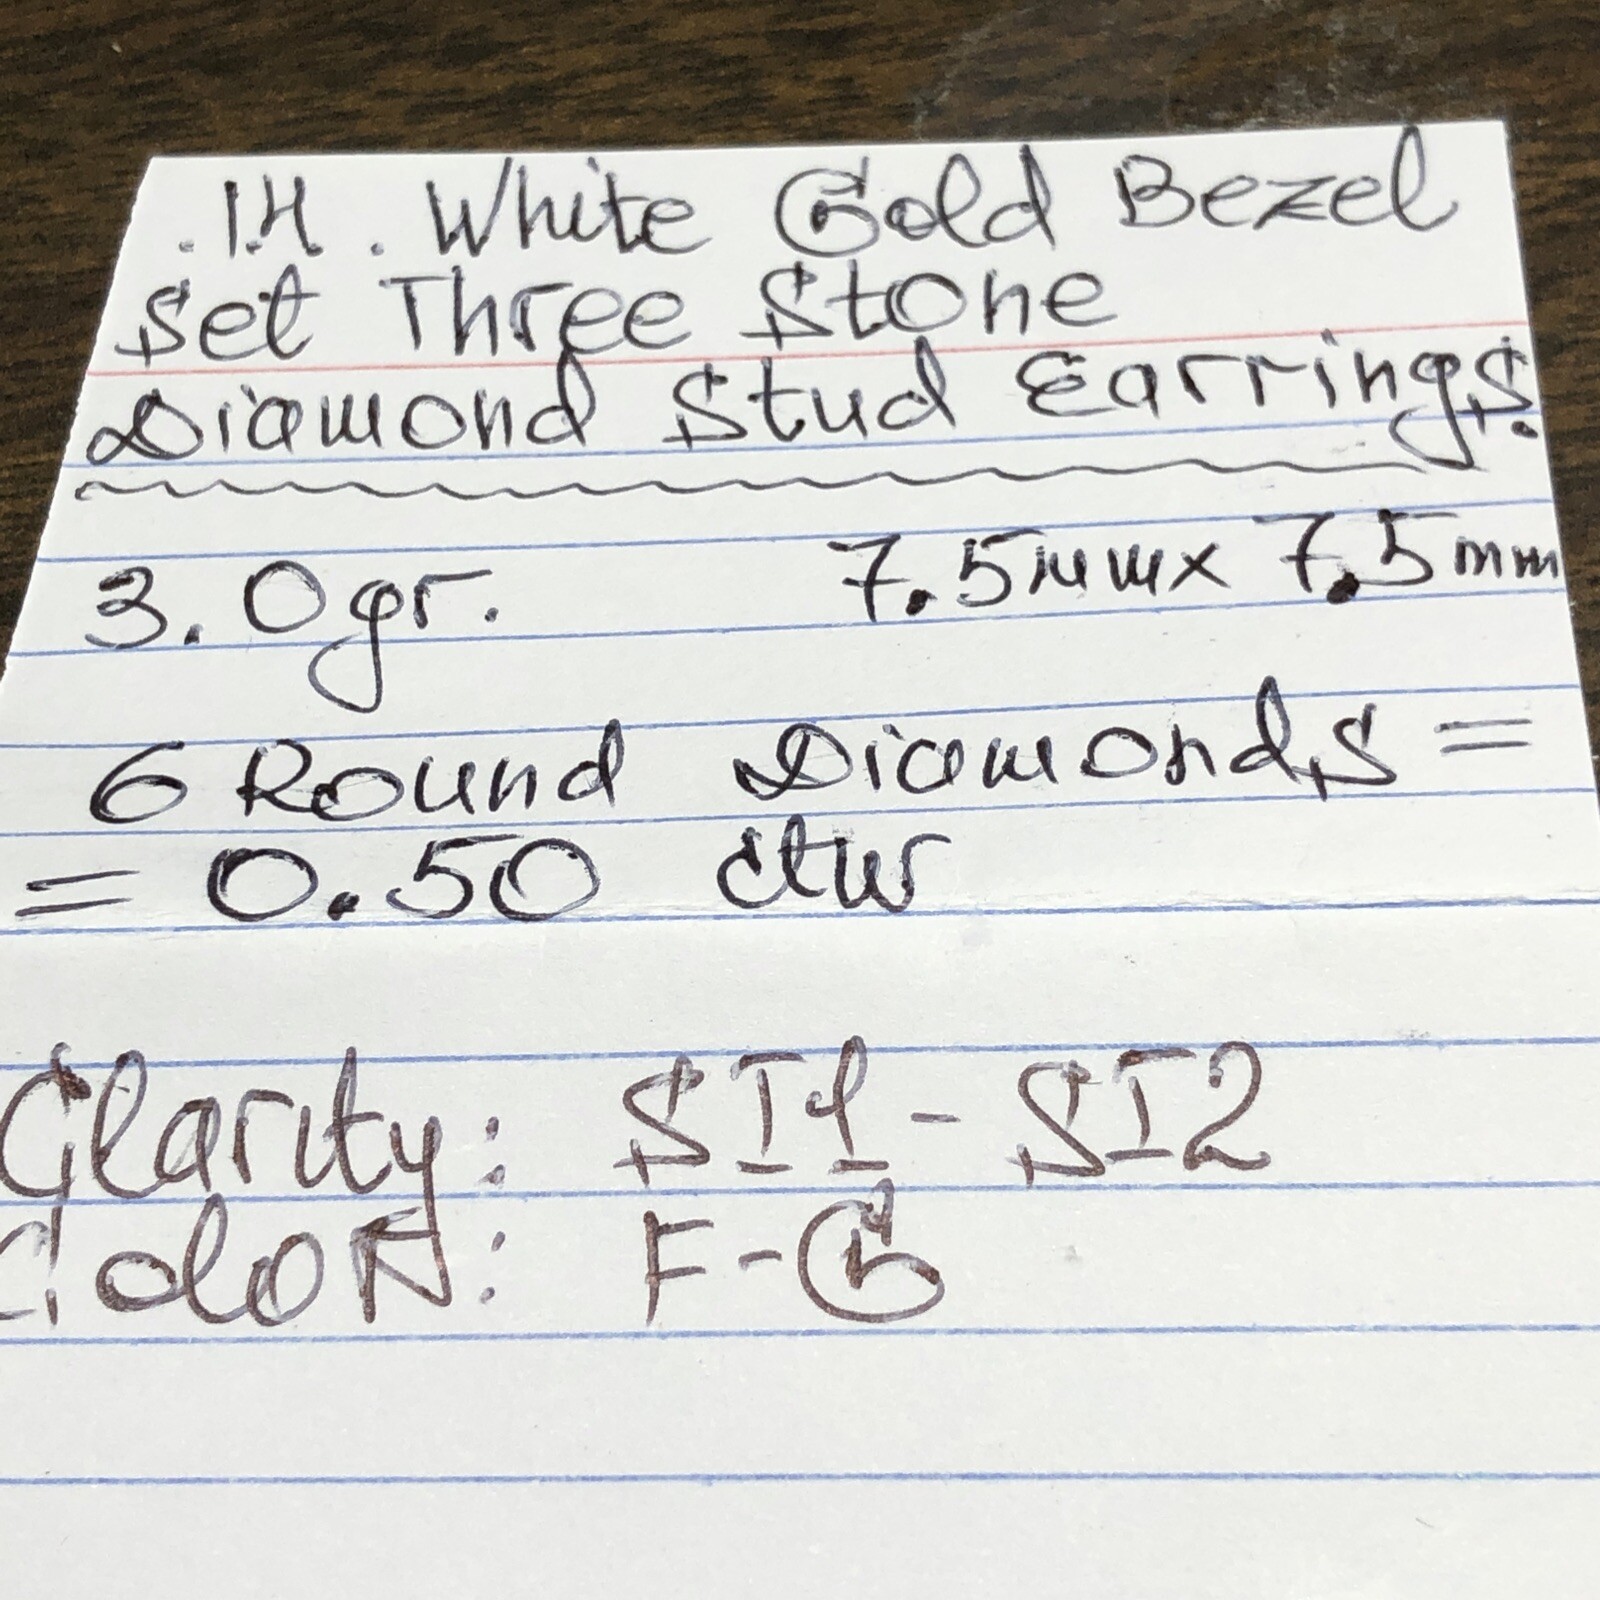 .14. White Gold Bezel
Set Three Stone
Diamond Stud Earrings.
3.0gr. 7.5mmx 7.5mm
6 Round Diamonds =
= 0.50 ctw
Clarity: SI1 - SI2
Color: F-G